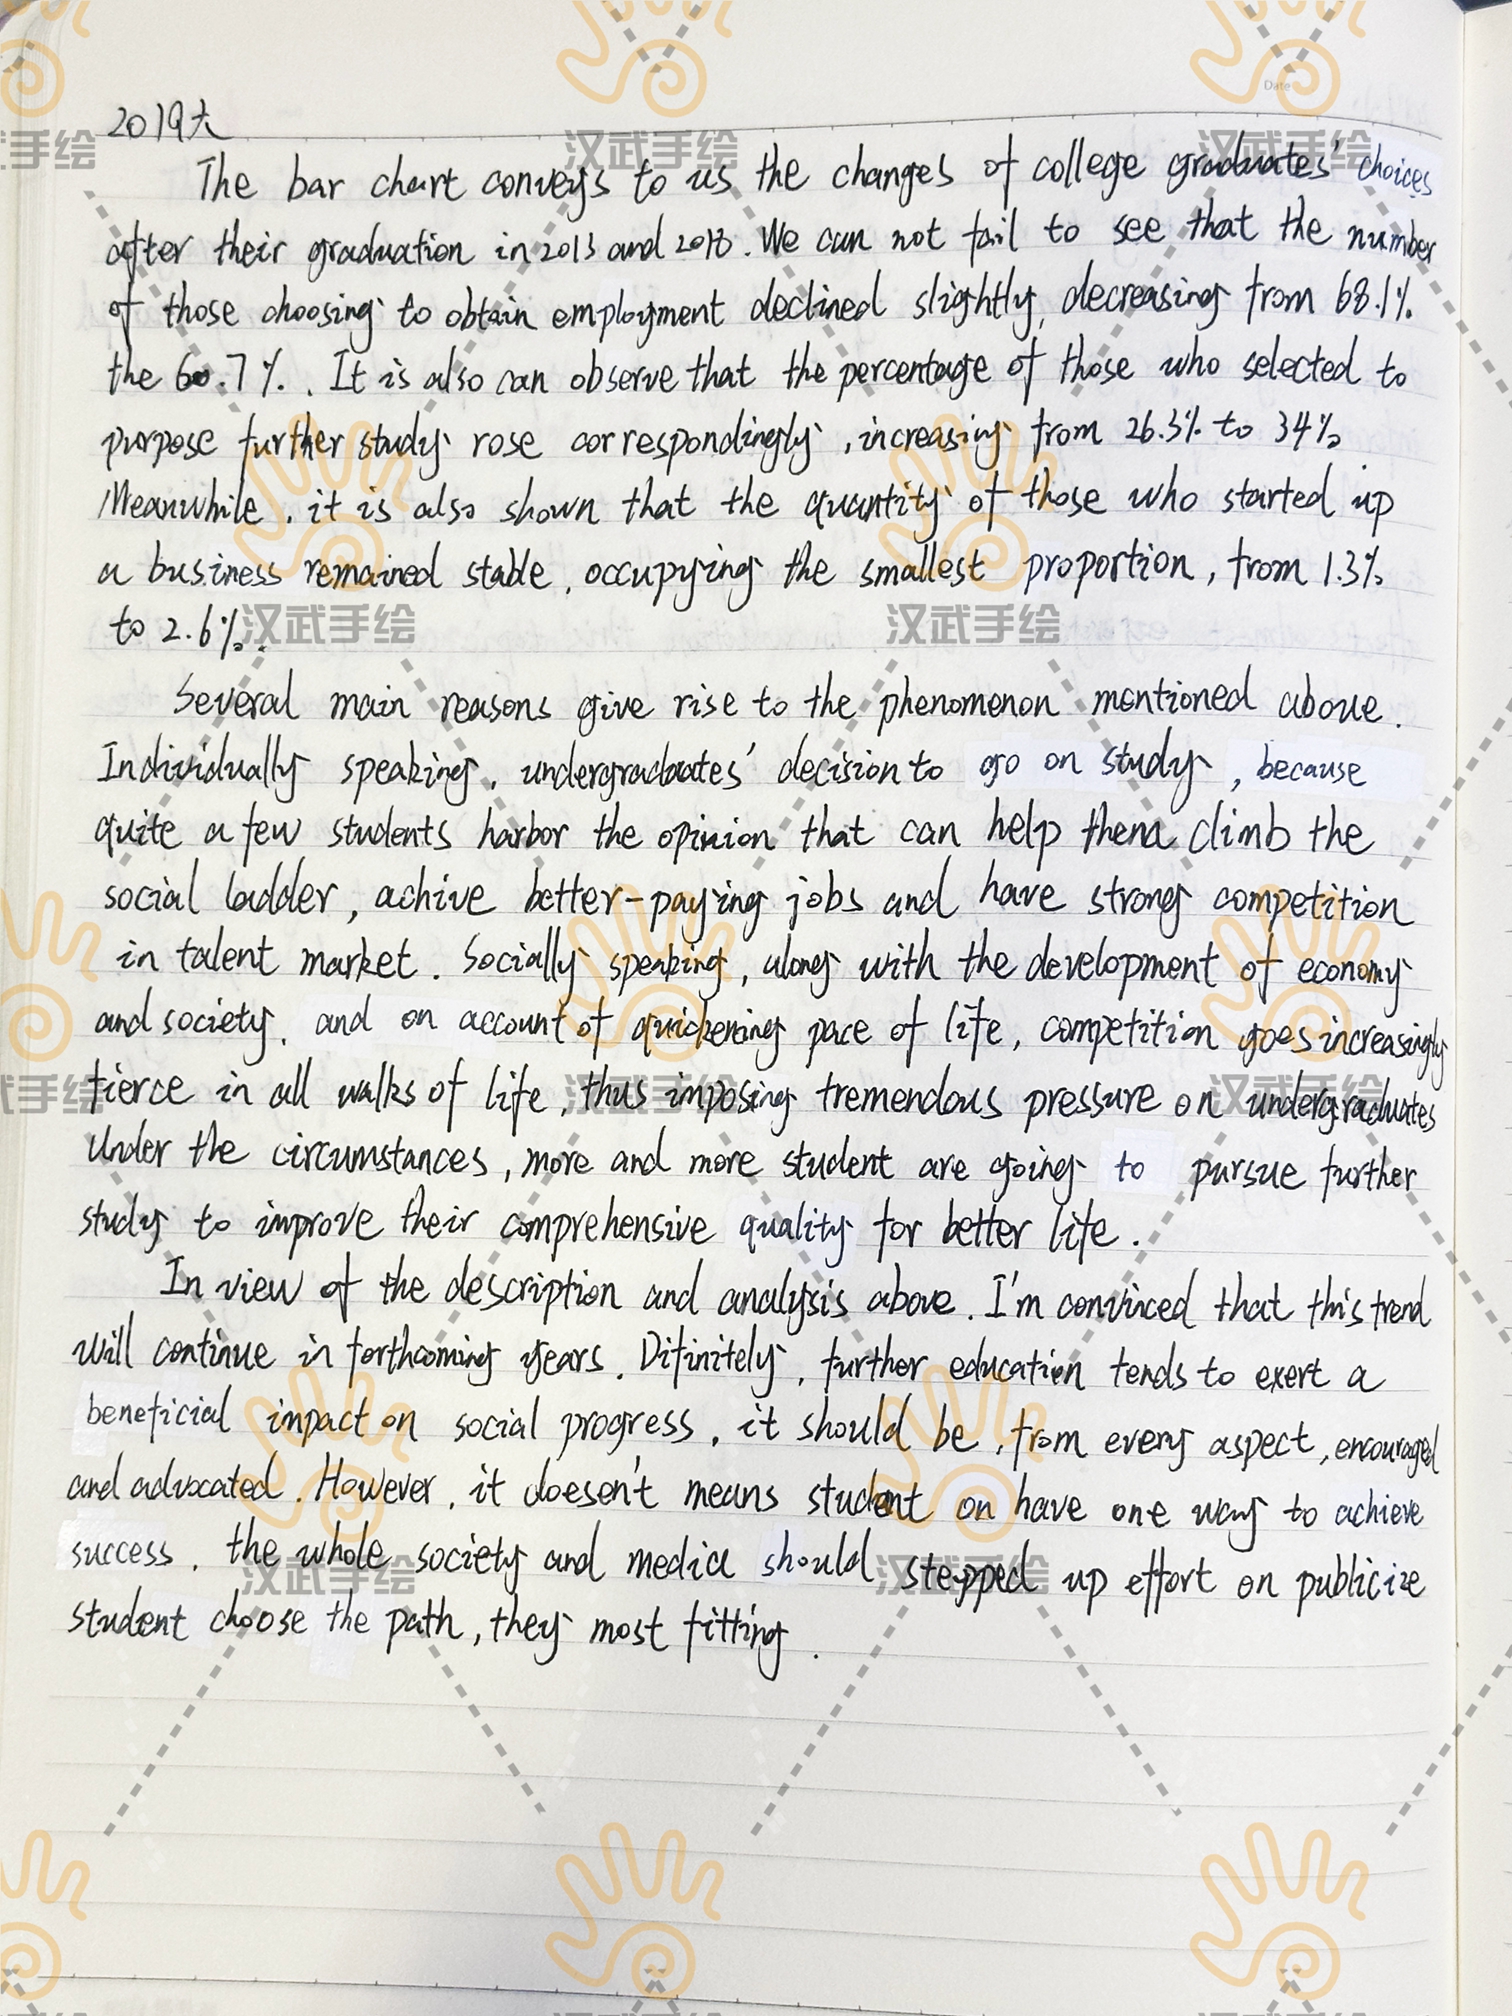 Date
2019大
The bar chart conveys to us the changes of college graduates' choices
after their graduation in 2013 and 2018. We can not fail to see that the number
of those choosing to obtain employment declined slightly, decreasing from 68.1%
the 60.7%. It is also can observe that the percentage of those who selected to
purpose further study rose correspondingly, increasing from 26.3% to 34%.
Meanwhile, it is also shown that the quantity of those who started up
a business remained stable, occupying the smallest proportion, from 1.3%
to 2.6%.
Several main reasons give rise to the phenomenon mentioned above.
Individually speaking, undergraduates' decision to go on study, because
quite a few students harbor the opinion that can help them climb the
social ladder, achive better-paying jobs and have strong competition
in talent market. Socially speaking, along with the development of economy
and society, and on account of quickening pace of life, competition goes increasingly
fierce in all walks of life, thus imposing tremendous pressure on undergraduates
Under the circumstances, more and more student are going to pursue further
study to improve their comprehensive quality for better life.
In view of the description and analysis above. I'm convinced that this trend
will continue in forthcoming years. Difinitely, further education tends to exert a
beneficial impact on social progress, it should be, from every aspect, encouraged
and advocated. However, it doesen't means student on have one way to achieve
success, the whole society and media should stepped up effort on publicize
student choose the path, they most fitting.
汉武手绘
汉武手绘
汉武手绘
汉武手绘
汉武手绘
汉武手绘
汉武手绘
汉武手绘
汉武手绘
汉武手绘